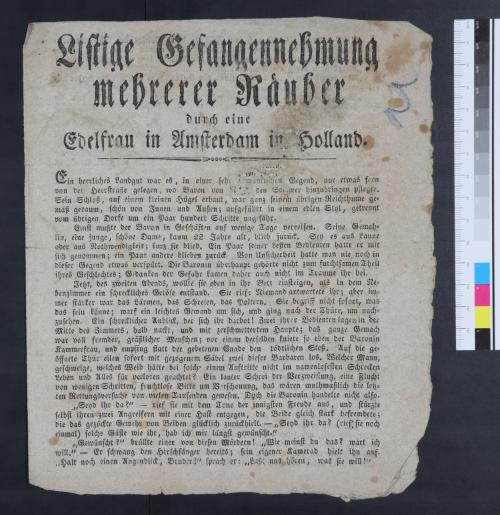 Listige Gefangennehmung
mehrerer Räuber
durch eine
Edelfrau in Amsterdam in Holland.
Ein herrliches Landgut war es, in einer sehr romantischen Gegend, nur etwas fern
von der Heerstraße gelegen, wo Baron von den Sommer hinzubringen pflegte.
Sein Schloß, auf einem kleinen Hügel erbaut, war ganz seinem übrigen Reichthume ge-
mäß geraum, schön von Innen und Außen; aufgeführt in einem edlen Styl, getrennt
vom übrigen Dorfe um ein Paar hundert Schritte ungefähr.
Einst mußte der Baron in Geschäften auf wenige Tage verreisen. Seine Gemah-
lin, eine junge, schöne Dame, kaum 22 Jahre alt, blieb zurück. Sey es aus Laune
oder aus Nothwendigkeit; kurz sie blieb. Ein Paar seiner besten Bedienten hatte er mit
sich genommen; ein Paar andere blieben zurück. Von Unsicherheit hatte man nie noch in
dieser Gegend etwas verspürt. Die Baronin überhaupt gehörte nicht zum furchtsamen Theil
ihres Geschlechts; Gedanken der Gefahr kamen daher auch nicht im Traume ihr bei.
Jetzt, des zweiten Abends, wollte sie eben in ihr Bett einsteigen, als in dem Ne-
benzimmer ein schreckliches Getöse entstand. Sie rief; Niemand antwortete ihr; aber im-
mer stärker war das Lärmen, das Schreien, das Poltern. Sie begriff nicht sofort, was
das sein könne; warf ein leichtes Gewand um sich, und ging nach der Thüre, um nach-
zusehen. Ein schrecklicher Anblick, der sich ihr darbot! Zwei ihrer Bedienten lagen in der
Mitte des Zimmers, halb nackt, und mit zerschmettertem Haupte; das ganze Gemach
war voll fremder, gräßlicher Menschen; vor einem derselben kniete so eben der Baronin
Kammerfrau, und empfing statt der gebetenen Gnade den tödtlichen Stoß. Auf die ge-
öffnete Thür eilten sofort mit gezogenem Säbel zwei dieser Barbaren los. Welcher Mann,
geschweige, welches Weib hätte bei solch' einem Auftritte nicht im namenlosesten Schrecken
Leben und Alles für verloren geachtet? Ein lauter Schrei der Verzweiflung, eine Flucht
von wenigen Schritten, fruchtlose Bitte um Verschonung, das wären muthmaßlich die letz-
ten Rettungsversuche von vielen Tausenden gewesen. Doch die Baronin handelte nicht also.
„Seyd ihr da?" — rief sie mit dem Tone der innigsten Freude aus, und stürzte
selbst ihren zwei Angreifern mit einer Hast entgegen, die Beide gleich stark befremdete;
die das gezückte Gewehr von Beiden glücklich zurückhielt. — „Seyd ihr da? (rief sie noch
einmal) solche Gäste wie ihr, hab ich mir längst gewünscht."
„Gewünscht?" brüllte einer von diesen Mördern! „Wie meinst du das? wart ich
will." — Er schwang den Hirschfänger bereits; sein eigener Kamerad hielt ihn auf.
„Halt noch einen Augenblick, Bruder!" sprach er: „Laßt uns hören, was sie will!"